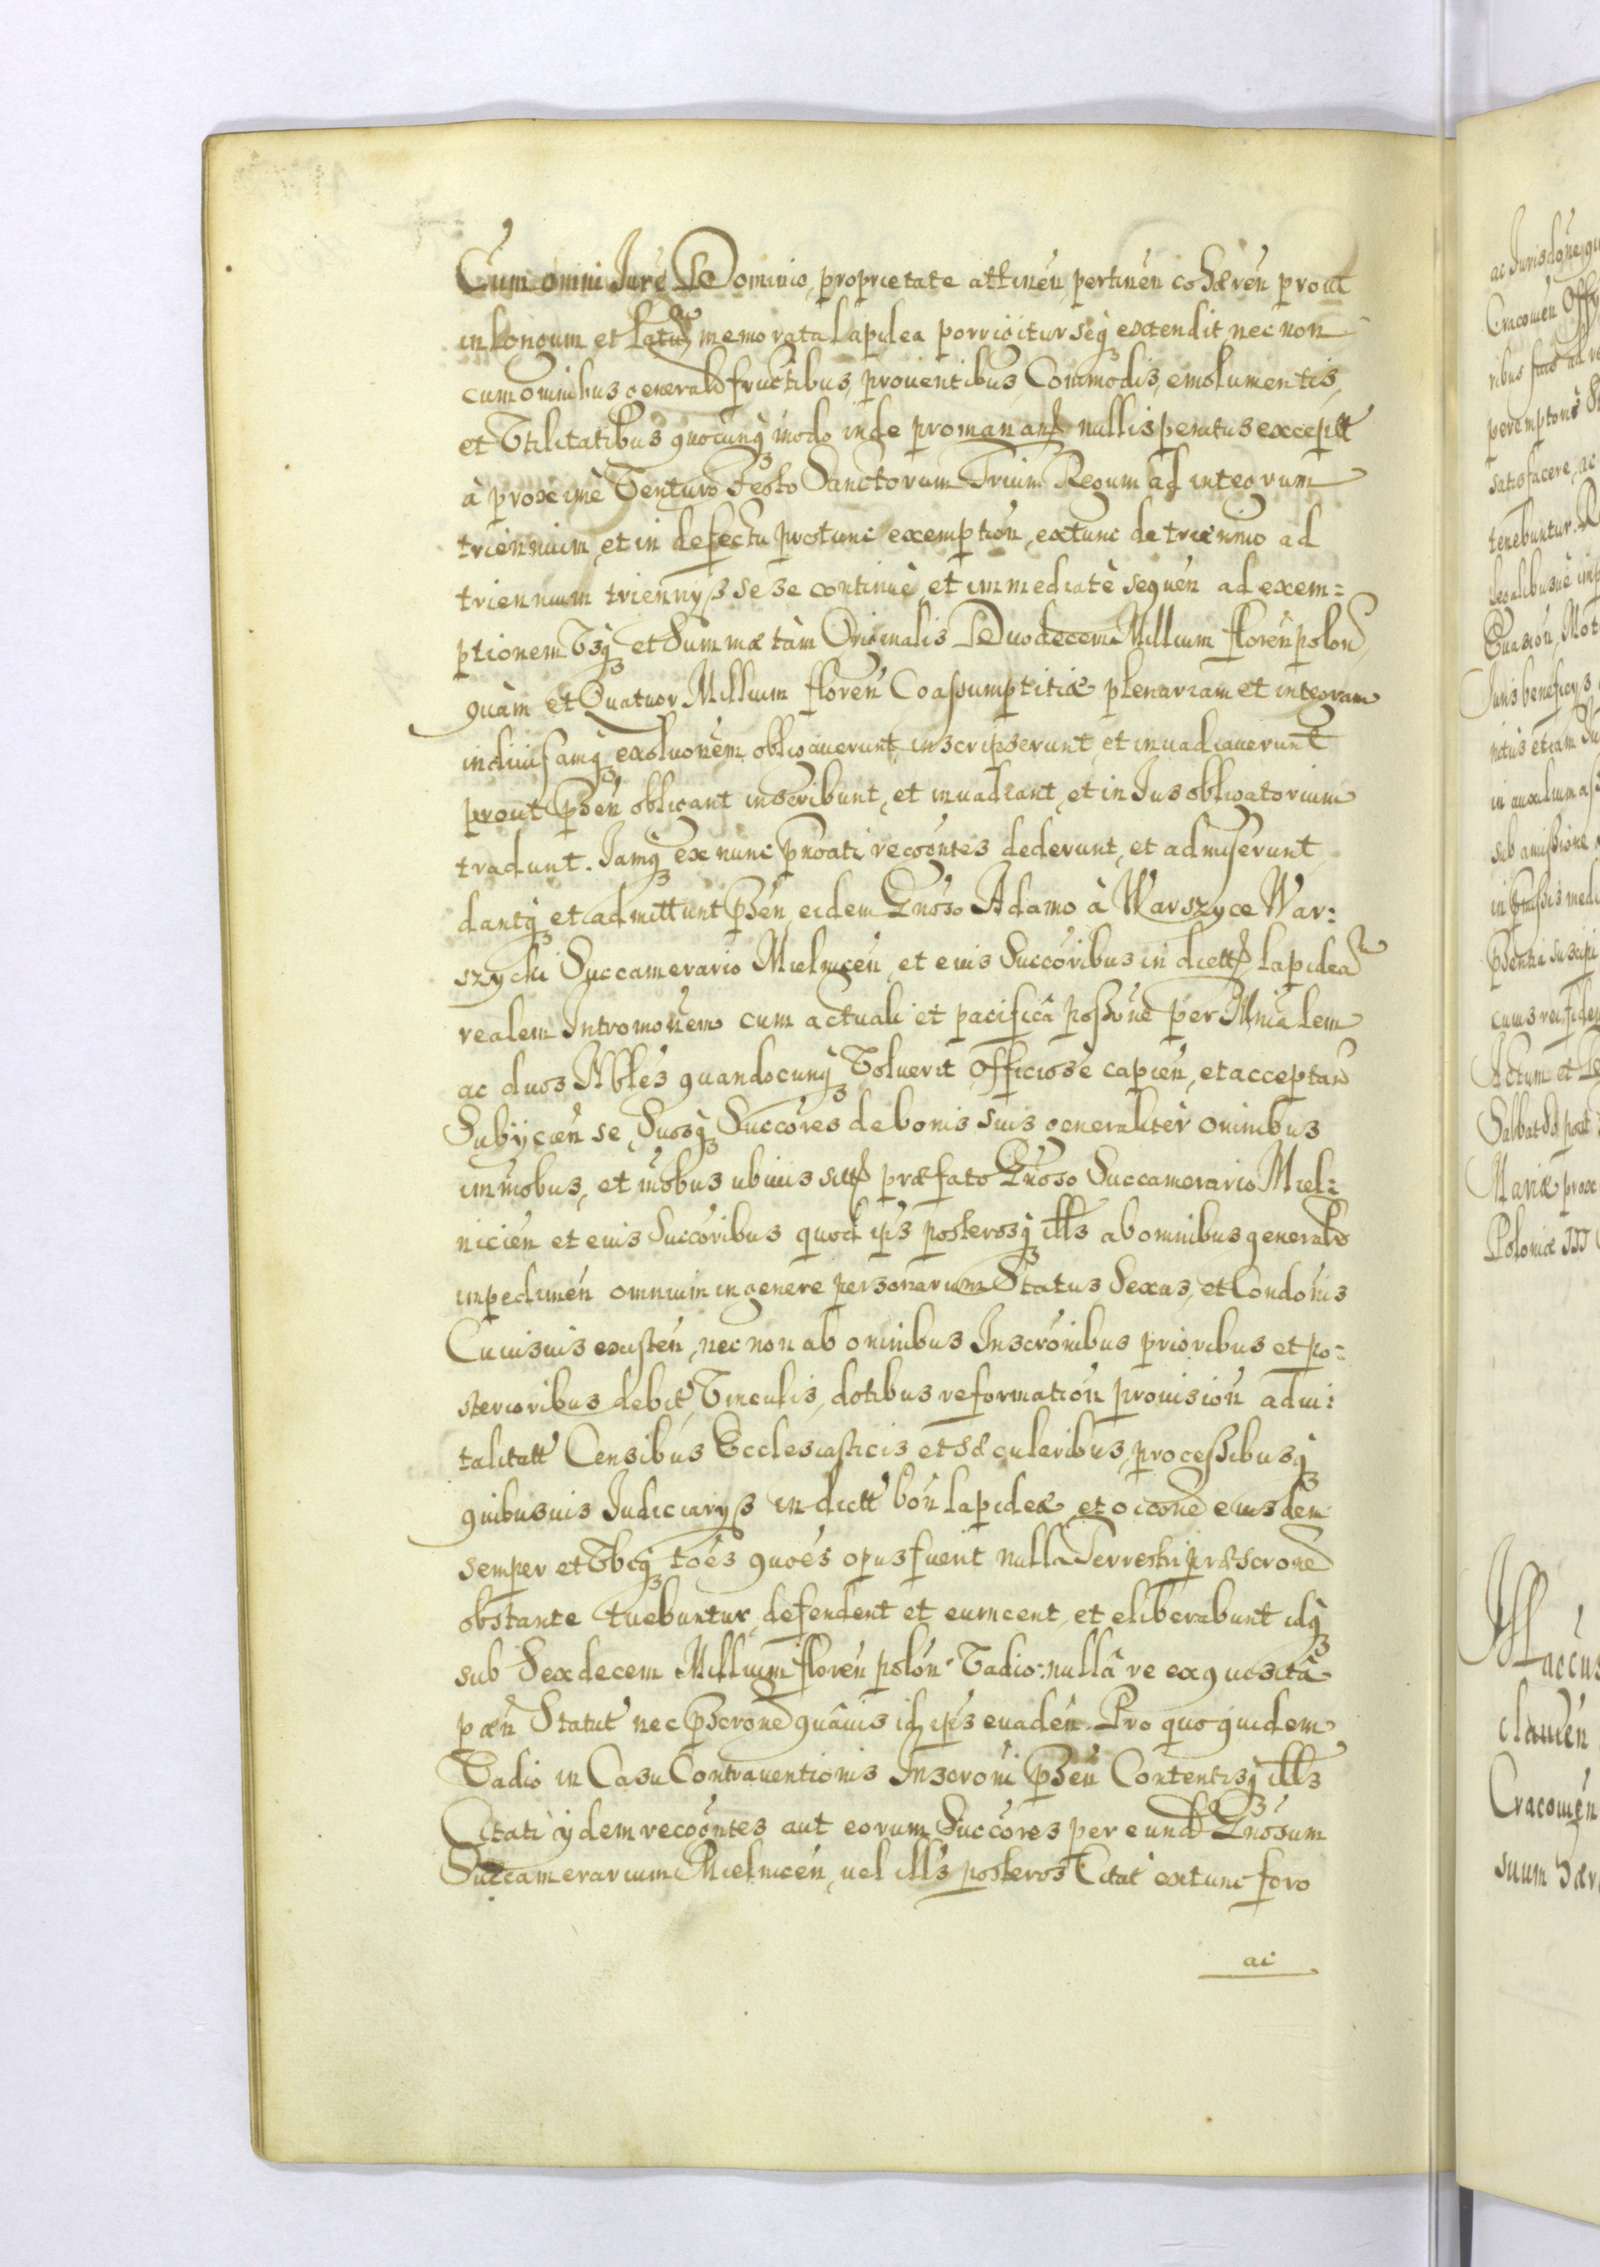 Cum omni Jure Dominio, proprietate attinen̄ pertinen̄ cohæren̄ prout
in longum et latum memorata lapidea porrigitur seq̄ʒ extendit, nec non
cum omnibus general fructibus, prouentibus, Commodis, emolumentis,
et Vtilitatibus quocunq̄ʒ modo inde promanan̄ nullis penitus exceptt
à proxime Venturo Festo Sanctorum Trium Regum ad integrum
triennium, et in defectu protunc exemption̄, extunc de triennio ad
triennium triennijs se se continuè et immediatè sequen̄ ad exem:
ptionem Vsq̄ʒ et Summæ tàm Originalis Duodecem Millium floren̄ polon̄
quàm et Quatuor Millium floren̄ Coassumptitiæ plenariam et integram
indiuisamq̄ʒ exoluōnem obligauerunt, inscripserunt, et inuadiauerunt
prout p̄sen̄ obligant inscribunt, et inuadiant, et in Jus obligatorium
tradunt. Jamq̄ʒ ex nunc p̄noāti recōōntes dederunt, et admiserunt
dantq̄ʒ et admittunt p̄sen̄ eidem Gn̄oso Adamo à Warszyce War:
szycki Succamerario Mielnicen̄, et eius Succōribus in dictt lapideā
realem Intromōnem cum actuali et pacificâ possōne per Mn̄ialem
ac duos Nb̄les quandocunq̄ʒ Voluerit Officiosè capien̄, et acceptan̄
Subijcien̄ se, Suosq̄ʒ Succōres de bonis suis generalitèr omnibus
immōbus, et mōbus ubiuis sitt præfato Gn̄oso Succamerario Miel:
nicien̄ et eius Succōribus quod ip̄s posterosq̄ʒ ill̄s ab omnibus general
impedimen̄ omnium in genere personarum Status Sexus, et Condōnis
Cuiusuis existen̄, nec non ab omnibus Inscrōnibus prioribus et po:
sterioribus debit, Vinculis, dotibus reformation̄ prouision̄ adui:
talitatt Censibus Ecclesiasticis et Sæcularibus, processibusq̄ʒ
quibusuis Judiciarijs in dictt bon̄ lapideæ, et oicōne eiusdem
semper et Vbiq̄ʒ tōēs quōēs opus fuerit nullâ Terrestri præscrōne
obstante tuebuntur, defendent et euincent, et eliberabunt idq̄ʒ
sub Sexdecem Millium floren̄ polon̄. Vadio: nullâ re exquisitâ
pæn̄ Statut nec p̄scrōne quâuis id ip̄s euaden̄. Pro quo quidem
Vadio in Casu Contrauentionis Inscrōni p̄sen̄ Contentisq̄ʒ ill̄s
Citati ijdem recōōntes aut eorum Succōres per eund Gn̄osum
Succamerarium Mielnicen̄, uel ill̄s posteros Citat extunc foro
ac